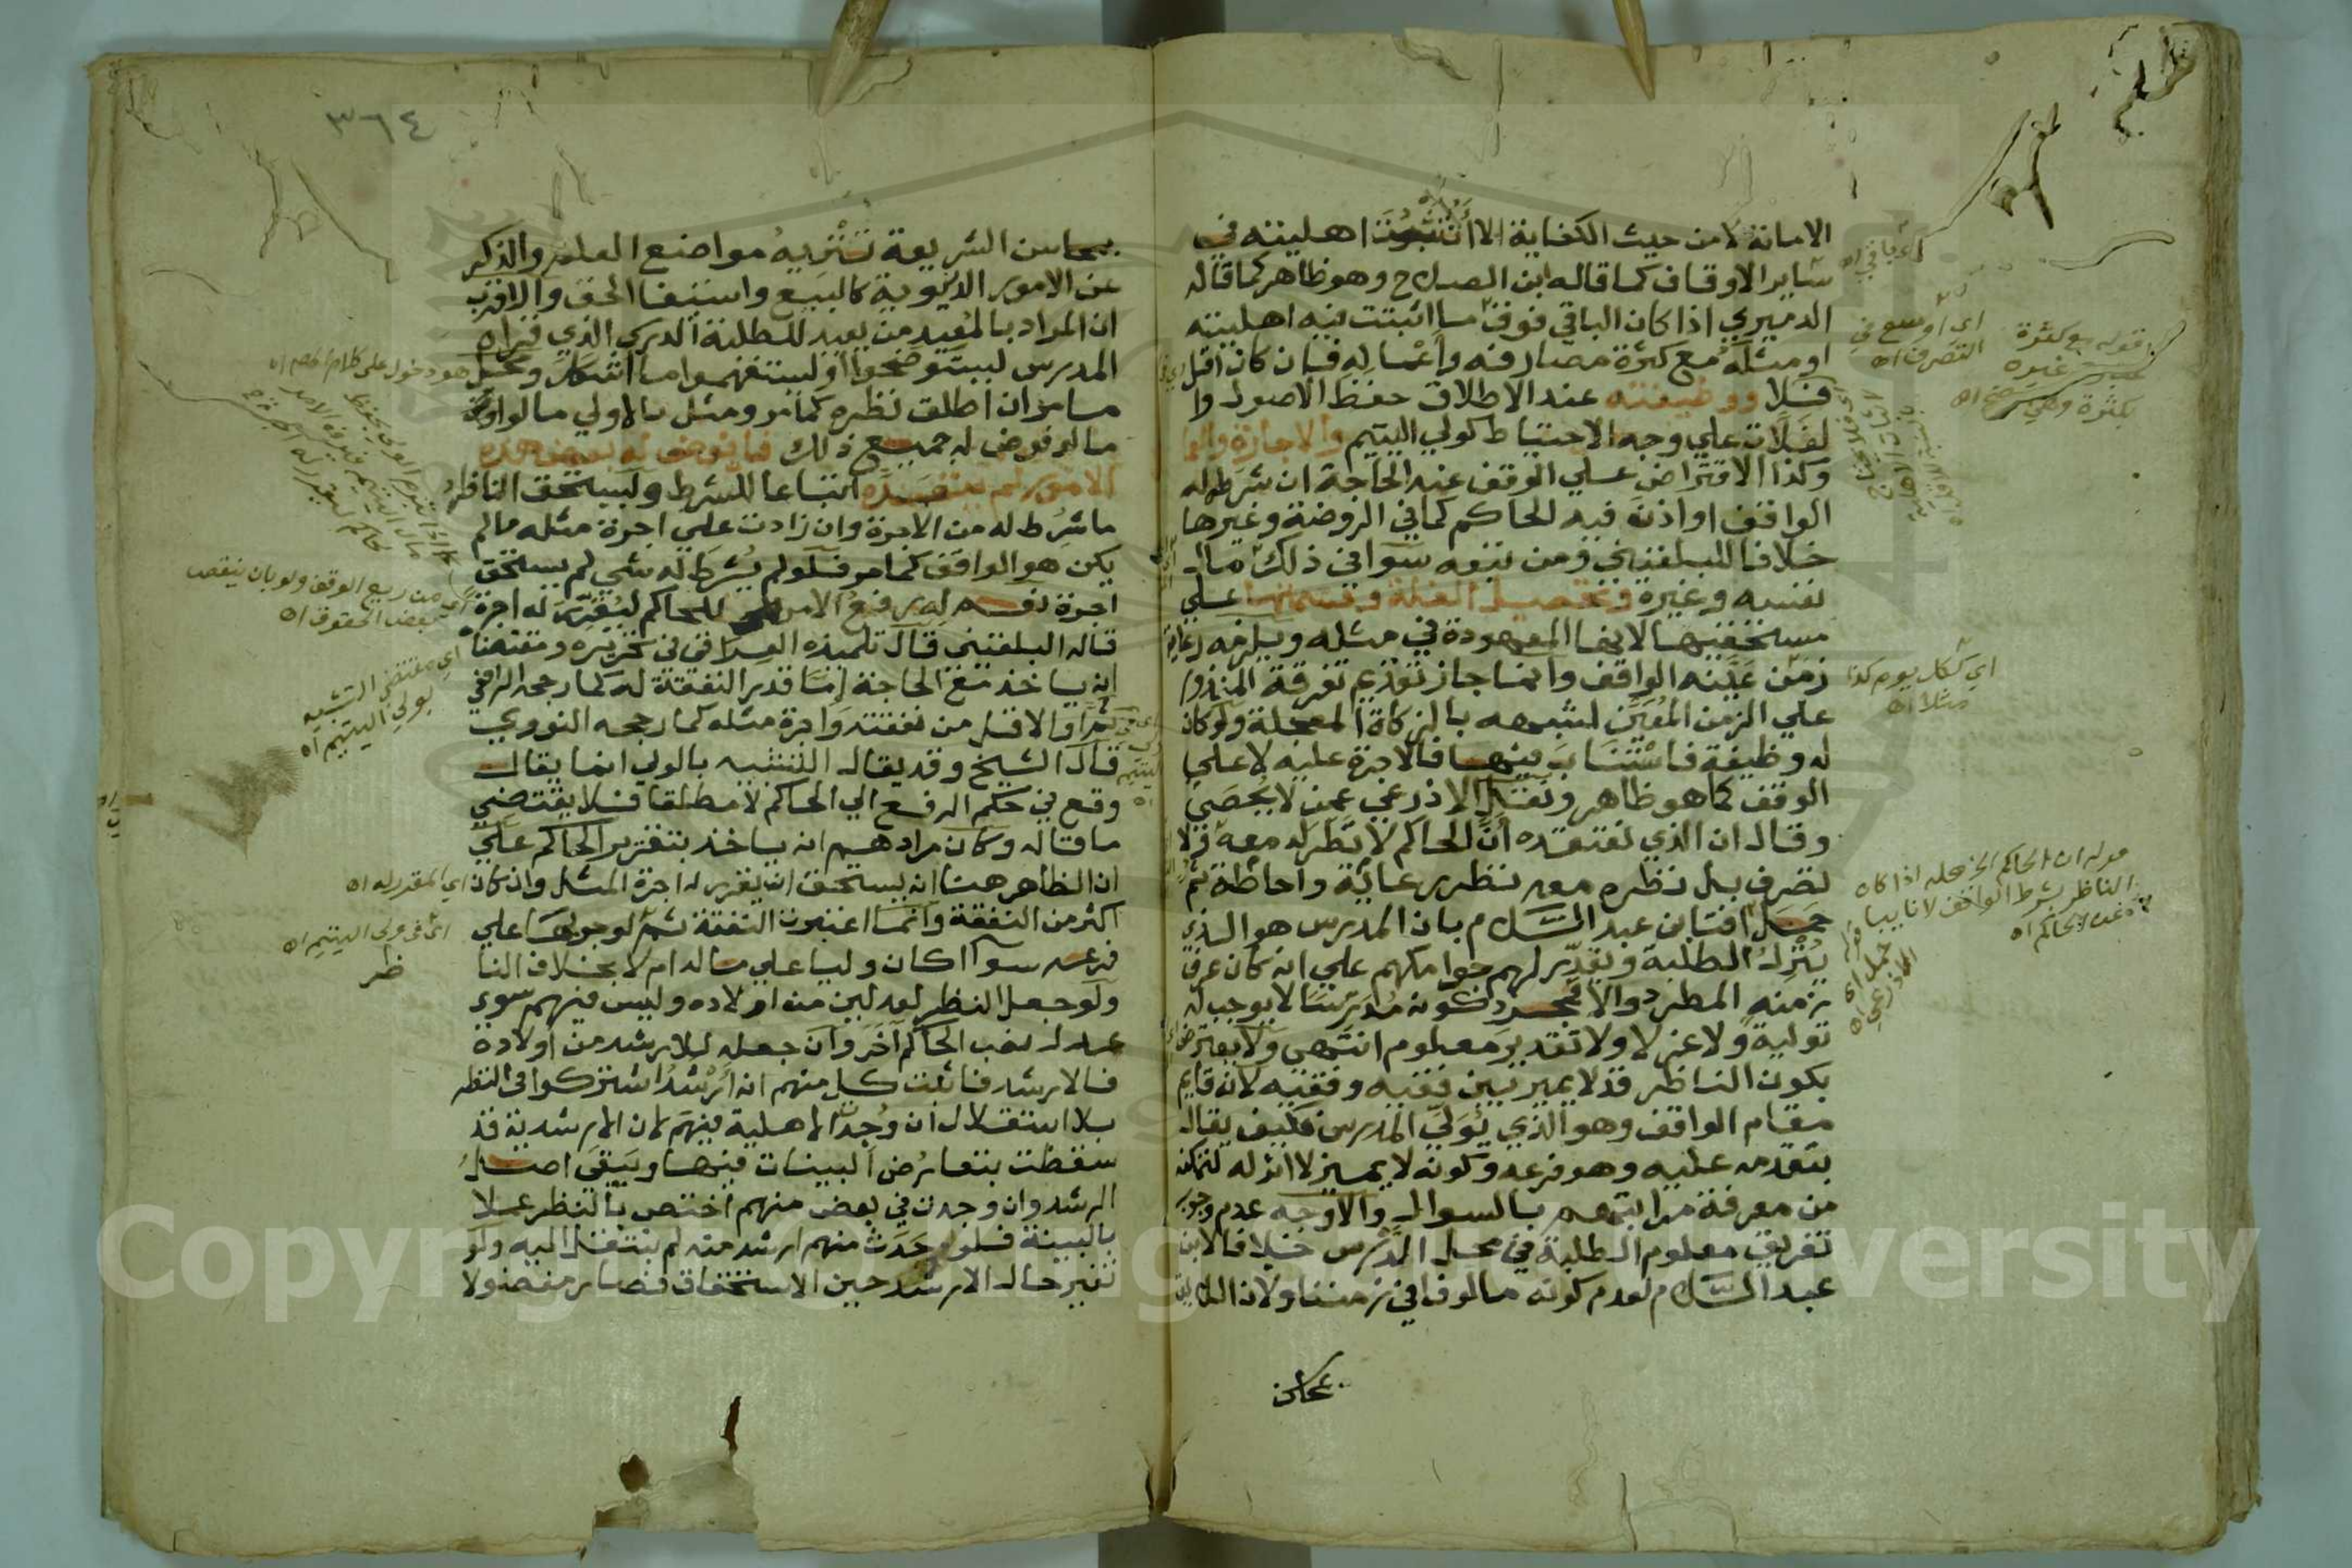 الامانة لا من حيث الكفاية الا ان تثبت اهليته في
ساير الاوقاف كما قاله ابن الصلاح وهو ظاهر كما قاله
الدميري اذا كان الباقي فوق ما اثبتت فيه اهليته
او مثله مع كثرة مصارفه واعماله فان كان اقل
فلا ووظيفته عند الاطلاق حفظ الاصول وا
لغلات علي وجه الاحتياط كولي اليتيم والاجارة والعما
وكذا الاقتراض علي الوقف عند الحاجة ان شرطه له
الواقف او اذن فيه الحاكم كما في الروضة وغيرها
خلافا للبلقيني ومن تبعه سوا في ذلك مال
نفسه وغيره وتحصيل الغلة وقسمتها علي
مستحقيها لانها المعهودة في مثله ويلزمه رعاية
زمن عينه الواقف وانما جاز تقديم تفرقة المنذور
علي الزمن المعين لشبهه بالزكاة المعجلة ولو كان
له وظيفة فاستناب فيها فالاجرة عليه لا علي
الوقف كما هو ظاهر ونقل الاذرعي عمن لا يحصي
وقال ان الذي نعتقده ان الحاكم لا نظر له معه ولا
تصرف بل نظره معه نظر رعاية واحاطة ثم
حمل افتا ابن عبد السلام بان المدرس هو الذي
ينزل الطلبة ويقدر لهم جوامكهم علي انه كان عرف
زمنه المطرد والا فمجرد كونه مدرسا لا يوجب له
تولية ولا عزلا ولا تقدير معلوم انتهي ولا يعترض
بكون الناظر قد لا يميز بين فقيه وفقيه لانه قايم
مقام الواقف وهو الذي يولي المدرس فكيف يقال
بتقدمه عليه وهو فرعه وكونه لا يميز لا اثر له لتمكنه
من معرفة مراتبهم بالسوال والاوجه عدم وجوب
تفريق معلوم الطلبة في محل الدرس خلافا لابن
عبد السلام لعدم كونه مالوفا في زمننا ولان اللايق
بمحاسن
اي باقي اه
اي اوسع في
التصرف اه
قوله مع كثرة
غيره
بكثرة وهي
اي كل يوم كذا
مثلا اه
قوله ان الحاكم الخ محله اذا كان
الناظر بشرط الواقف لا نايبا
عن الحاكم اه
حمل اي
الاذرعي اه
٣٦٤
بمحاسن الشريعة تنزيه مواضع العلم والذكر
عن الامور الدنيوية كالبيع واستيفا الحق والاقرب
ان المراد بالمعيد من يعيد للطلبة الدرس الذي قراه
المدرس ليستوضحوا او ليستفهموا ما اشكل ومحل
ما مر ان اطلق نظره كما مر ومثل بالاولي ما لو
ما لو فوض له جميع ذلك فان فوض له بعض هذه
الامور لم يتعده اتباعا للشرط وليستحق الناظر
ما شرط له من الاجرة وان زادت علي اجرة مثله ما لم
يكن هو الواقف كما مر فلو لم يشرط له شي لم يستحق
اجرة نعم له رفع الامر للحاكم ليقرر له اجرة
قاله البلقيني قال تلميذه العراقي في تحريره ومقتضا
انه ياخذ مع الحاجة اما قدر النفقة له كما رجحه الرافعي
ثم او الاقل من نفقته واجرة مثله كما رجحه النووي
قال الشيخ وقد يقال التشبيه بالولي انما يقال
وقع في حكم الرفع الي الحاكم لا مطلقا فلا يقتضي
ما قاله وكان مرادهم انه ياخذ بتقرير الحاكم علي
ان الظاهر هنا انه يستحق ان يقرر له اجرة المثل وان كان
اكثر من النفقة وانما اعتبرت النفقة ثم لوجوبها علي
فرعه سوا كان وليا علي ماله ام لا بخلاف النا
ولو جعل النظر لعدلين من اولاده وليس فيهم سوي
عدل نصب الحاكم اخر وان جعله للارشد من اولاده
فالارشد فاثبت كل منهم انه ارشد اشتركوا في النظر
بلا استقلال ان وجدت الاهلية فيهم لان الارشدية قد
سقطت بتعارض البينات فيها ويبقي اصل
الرشد وان وجدت في بعض منهم اختص بالنظر عملا
بالبينة فلو حدث منهم ارشد منه لم ينتقل اليه ولو
تغير حال الارشد حين الاستحقاق فصار مفضولا
هو دخول علي كلام المص اه
من ريع الوقف ولو بان ينقص
بعض الحقوق اه
اي مقتضي التشبيه
بولي اليتيم اه
اي المقدر له اه
اي في ولي اليتيم اه
ظر
Copyright © King Saud University